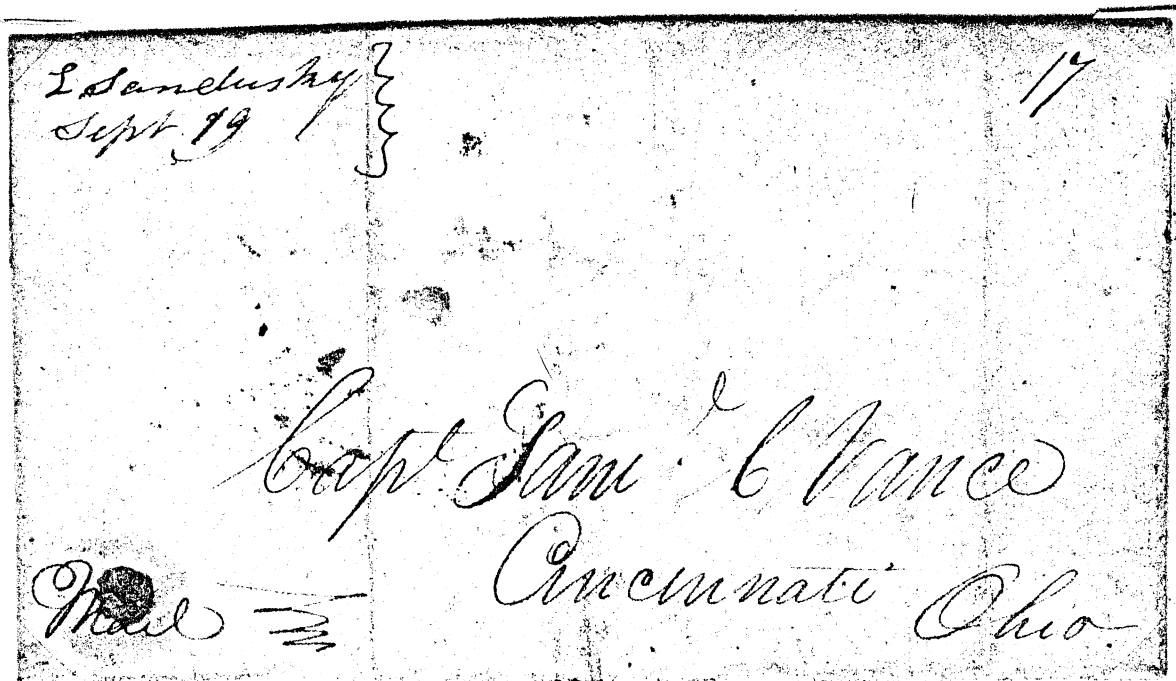 L Sandusky
Sept 19
17
Capt Saml C Vance
Cincinnati Ohio
Mail